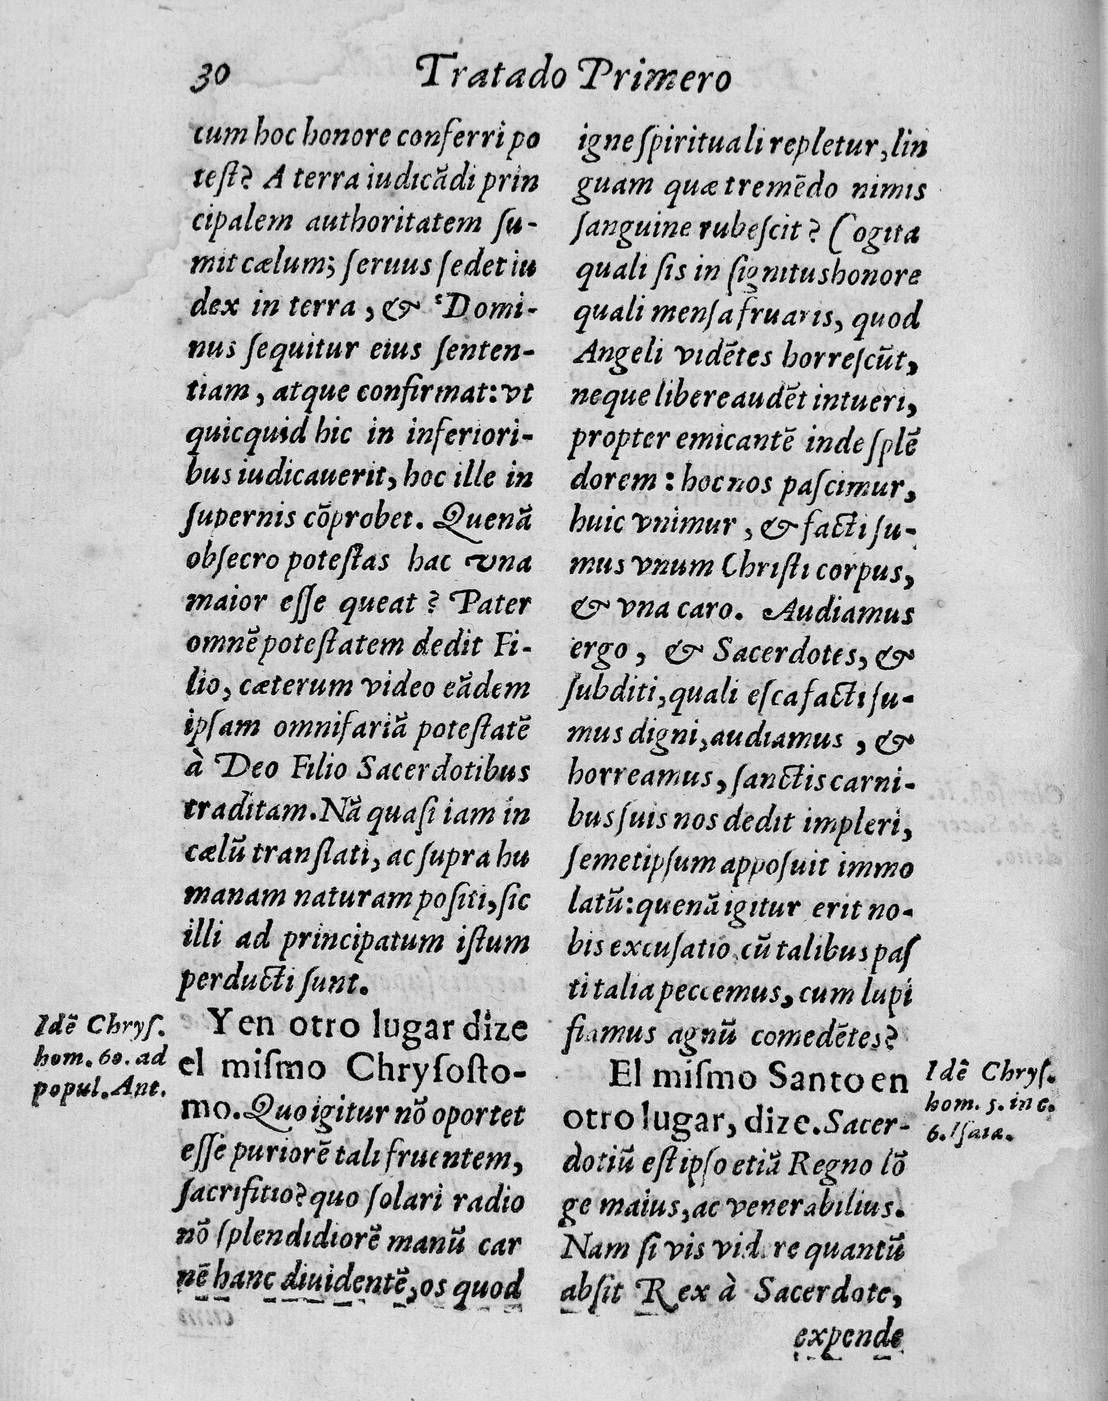 30
Tratado Primero
cum hoc honore conferri po
teſt? A terra iudicãdi prin
cipalem authoritatem ſu-
mit cælum; ſeruus ſedet iu
dex in terra, & Domi-
nus ſequitur eius ſenten-
tiam, atque confirmat: vt
quicquid hic in inferiori-
bus iudicauerit, hoc ille in
ſupernis cõprobet. Quenã
obſecro poteſtas hac vna
maior eſſe queat? Pater
omnẽ poteſtatem dedit Fi-
lio, cæterum video eãdem
ipſam omnifariã poteſtatẽ
à Deo Filio Sacerdotibus
traditam. Nã quaſi iam in
cælũ tranſlati, ac ſupra hu
manam naturam poſiti, ſic
illi ad principatum iſtum
perducti ſunt.
Y en otro lugar dize
el miſmo Chryſoſto-
mo. Quo igitur nõ oportet
eſſe puriorẽ tali fruentem,
ſacrifitio? quo ſolari radio
nõ ſplendidiorẽ manũ car
nẽ hanc diuidentẽ, os quod
Idẽ Chryſ.
hom. 60. ad
popul. Ant.
igne ſpirituali repletur, lin
guam quæ tremẽdo nimis
ſanguine rubeſcit? Cogita
quali ſis in ſignitus honore
quali menſa fruaris, quod
Angeli vidẽtes horreſcũt,
neque libere audẽt intueri,
propter emicantẽ inde ſplẽ
dorem: hoc nos paſcimur,
huic vnimur, & facti ſu-
mus vnum Chriſti corpus,
& vna caro. Audiamus
ergo, & Sacerdotes, &
ſubditi, quali eſca facti ſu-
mus digni, audiamus, &
horreamus, ſanctis carni-
bus ſuis nos dedit impleri,
ſemetipſum appoſuit immo
latũ: quenã igitur erit no-
bis excuſatio cũ talibus paſ
ti talia peccemus, cum lupi
fiamus agnũ comedẽtes?
El miſmo Santo en
otro lugar, dize. Sacer-
dotiũ eſt ipſo etiã Regno lõ
ge maius, ac venerabilius.
Nam ſi vis videre quantũ
abſit Rex à Sacerdote,
expende
Idẽ Chryſ.
hom. 5. in c.
6. Iſaiæ.